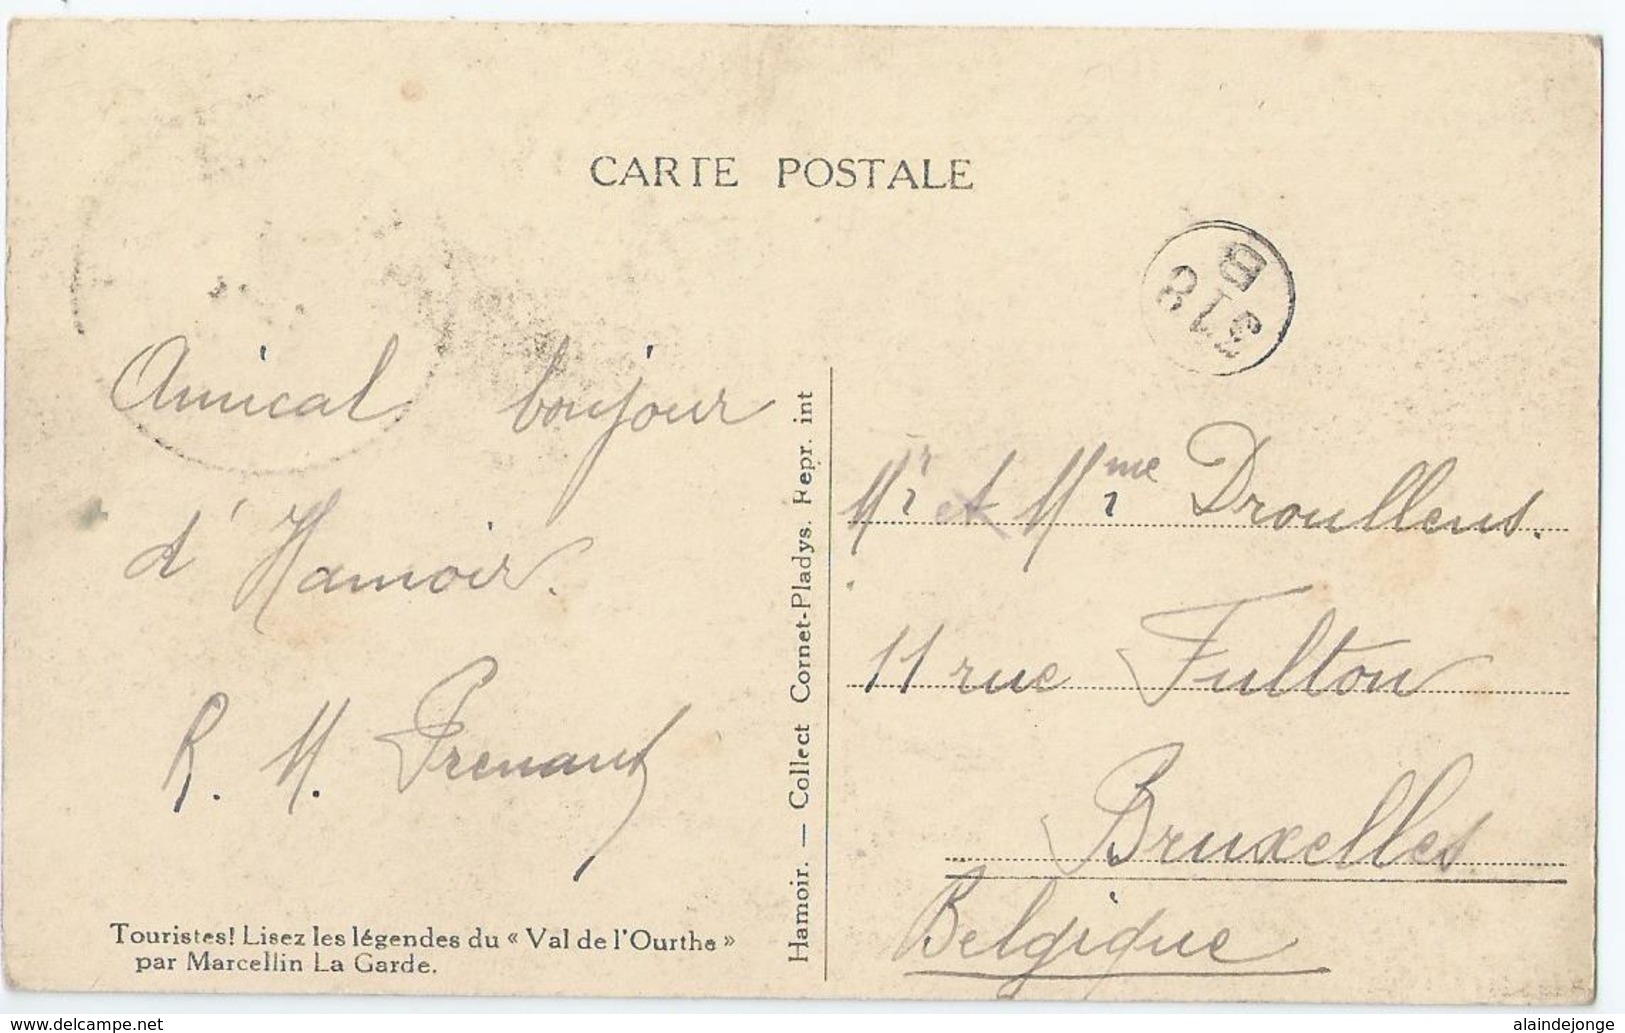 CARTE POSTALE
B
318
Amical bonjour
d'Hamoir.
R. M. Prenant
Touristes! Lisez les légendes du « Val de l'Ourthe »
par Marcellin La Garde.
Hamoir. — Collect Cornet-Pladys. Repr. int
Mr et Mme Droullens.
11 rue Fulton
Bruxelles
Belgique
delcampe.net
alaindejonge